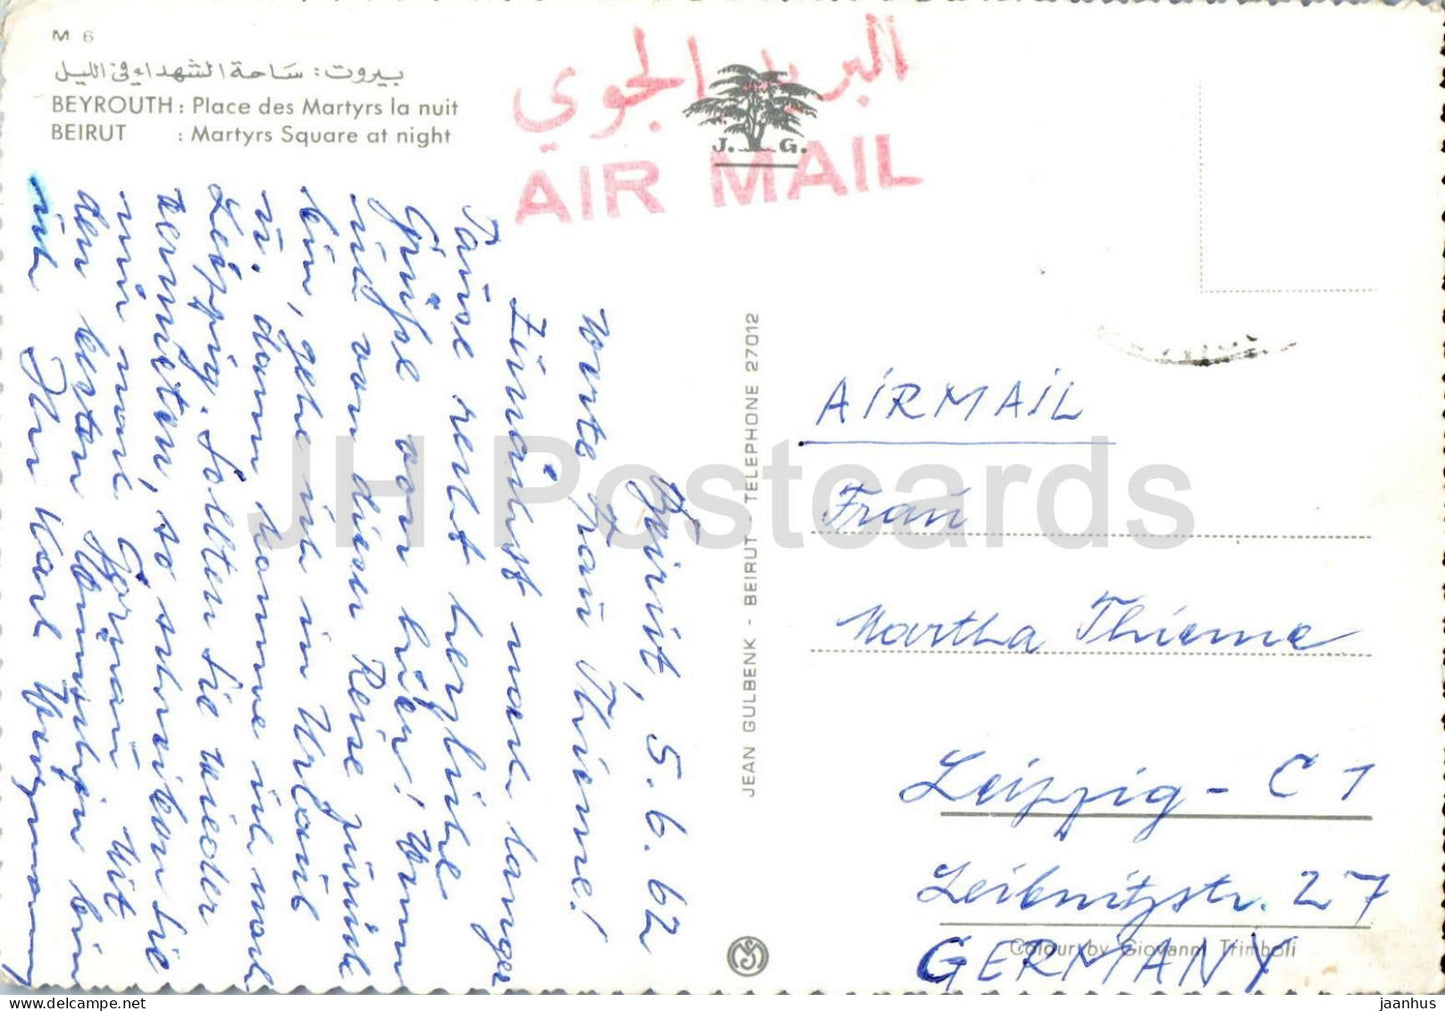 M 6
بيروت: ساحة الشهداء في الليل
BEYROUTH : Place des Martyrs la nuit
BEIRUT : Martyrs Square at night
البريد الجوي
AIR MAIL
J. G.
Beirut, 5. 6. 62
Werte Frau Thieme!
Zunächst nach langer
Pause recht herzliche
Grüße von hier! Wenn
ich von dieser Reise zurück
bin, gehe ich in Urlaub
u. dann komme ich nach
Leipzig. Sollten Sie wieder
vermieten, so schreiben Sie
mir nach Mit
den besten Wünschen bin
ich Ihr Karl
JEAN GULBENK - BEIRUT - TELEPHONE 27012
AIRMAIL
Frau
Martha Thieme
Leipzig - C 1
Leibnitzstr. 27
GERMANY
Colour by Giovanni Trimboli
JH Postcards
www.delcampe.net
jaanhus